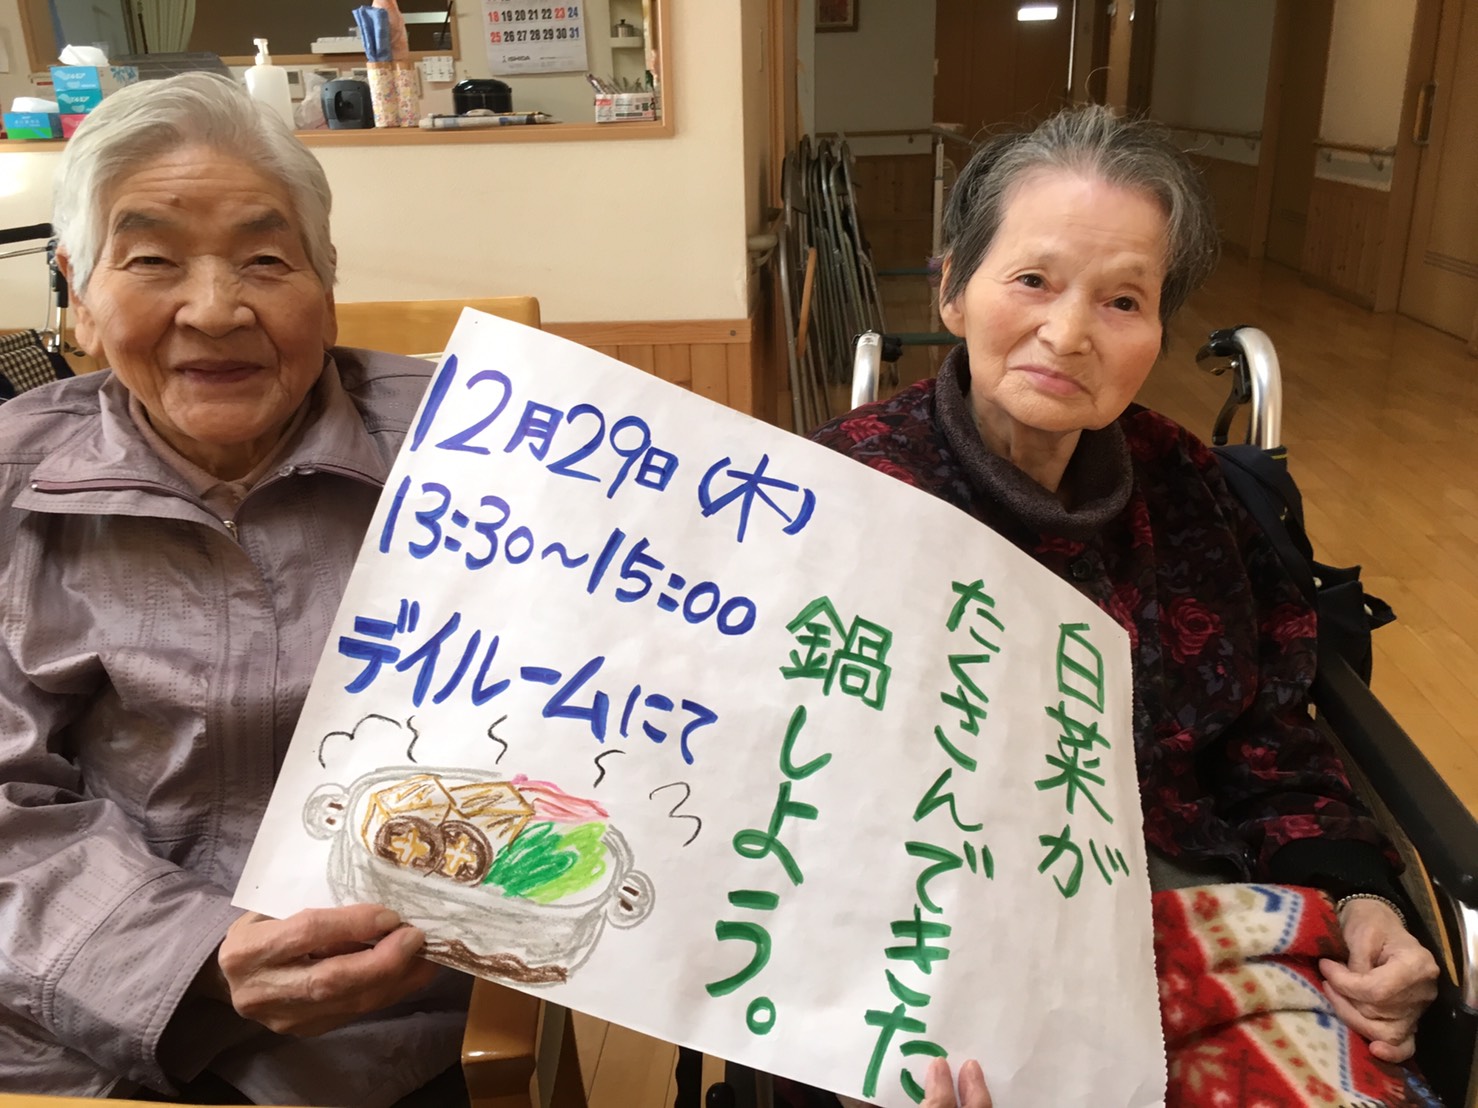 18 19 20 21 22 23 24
25 26 27 28 29 30 31
ISHIDA
12月29日(木)
13:30～15:00
デイルームにて
白菜が
たくさんできた
鍋しよう。